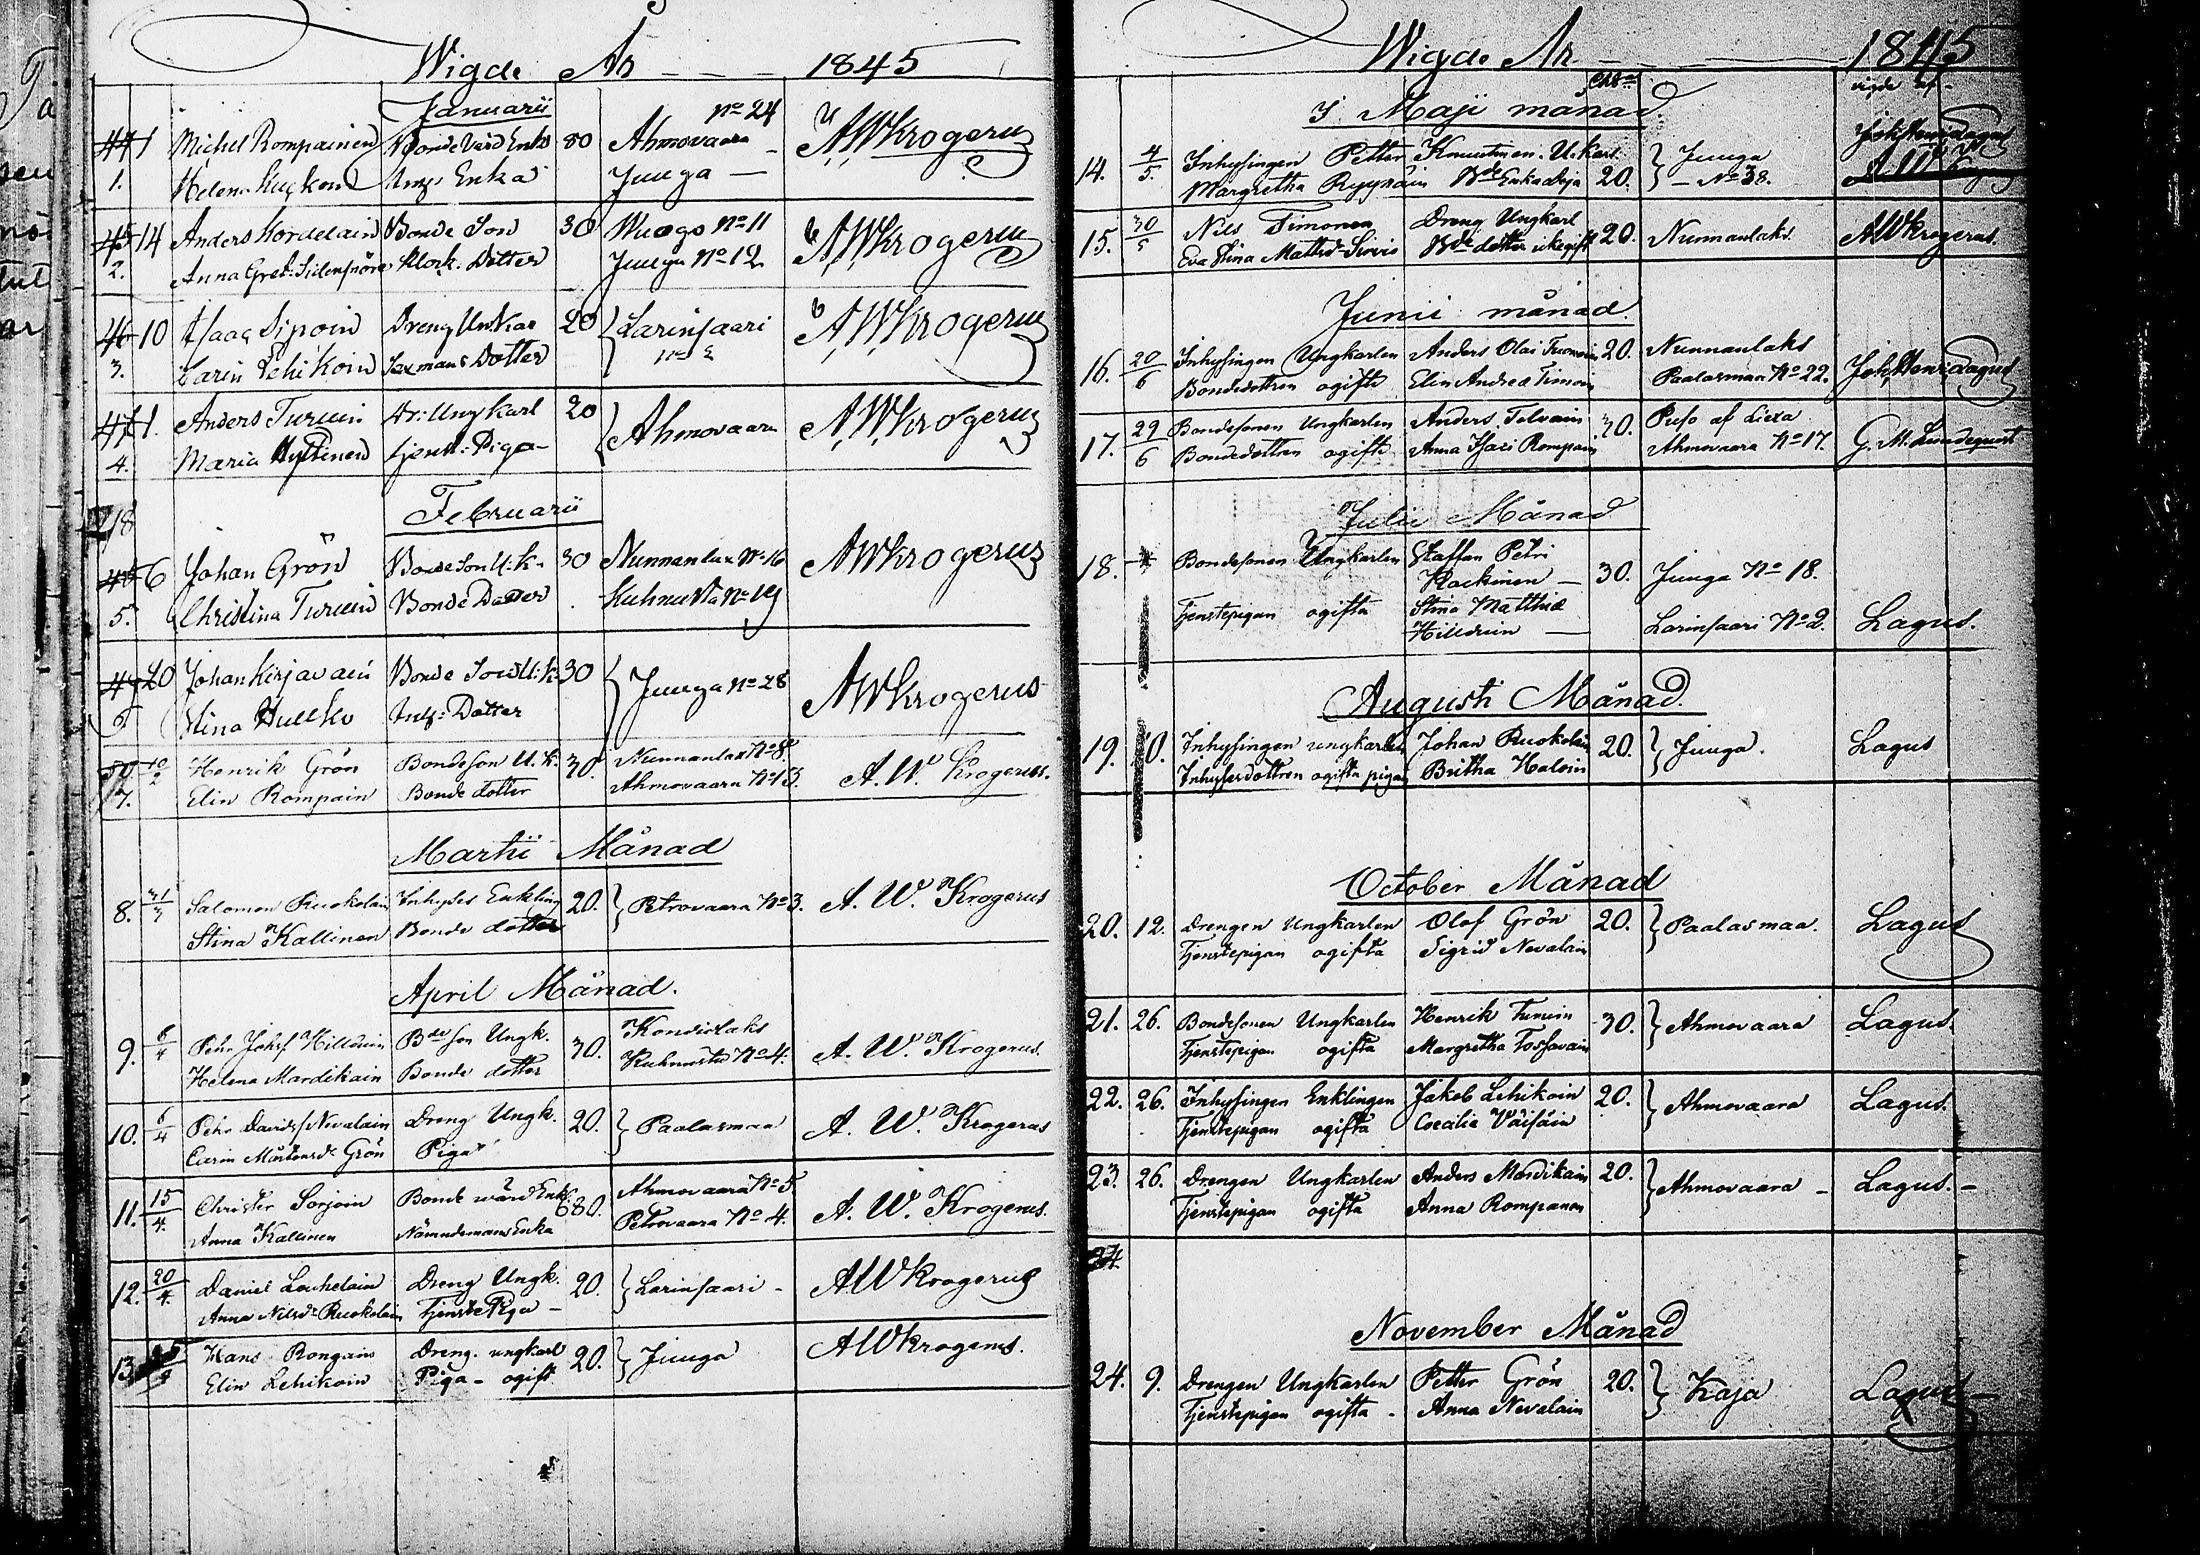 Wigde År 1845
Januarii
No 24
44 1 Michel Rompainen Bonde 80 Ahmovaara A.W.Krogerus
1. Helena Enka Juuga
45 14 Anders Kordelain Bonde Son 30 No 11 A.W.Krogerus
2. Anna Gret: Klock. Dotter Juuga No 12
46 10 Isaac Sipoin Dreng 20 Larinsaari A.W.Krogerus
3. Carin Lehikoin Sexmans Dotter
47 1. Anders Turuin Dr: Ungkarl 20 Ahmovaara A.W.Krogerus
4. Maria Hyttinen tjenst: Piga
Februarii
48
6 Johan Grön Bonde Son U:k. 30 Nunnanlax No 16 AWKrogerus
5. Christina Turuin Bonde Dotter Kuhnusta No 19
49 20 Johan Kirjavain Bonde Son U:k. 30 Juuga No 28 AWKrogerus
6 Stina Hullko Inh: Dotter
50 10/2 Henrik Grön Bondeson U.k. 30. Nunnanlax No 8. A. W. Krogerus.
7. Elin Rompain Bonde dotter Ahmovaara No 13.
Martii Månad
8. 31/3 Salomon Ruokolain Inhyses Enkling 20. Petrovaara No 3. A. W. Krogerus
Stina Kallinen Bonde dotter
April Månad.
9. 6/4 Pehr Johsf Hilduin Bde son Ungk. 30. Kondiolaks A. W. Krogerus.
Helena Mardikain Bonde dotter Kuhnusta No 4.
10. 6/4 Pehr Davidsf Nevalain Dreng Ungk. 20. Paalasmaa A. W. Krogerus
Carin Mårtensdr Grön Piga
11. 15/4. Christer Sorjoin Bonde 80. Ahmovaara No 5 A. W. Krogerus.
Anna Kallinen Nämndemans Enka Petrovaara No 4.
12. 20/4. Daniel Louhelain Dreng Ungk. 20. Larinsaari - AWKrogerus
Anna Nilsdr Ruokolain TjenstePiga -
13. Hans Rongain Dreng. ungkarl 20. Juuga AWKrogerus.
Elin Lehikoin Piga - ogift
Wigde År 1845
vigde af
I Maji månad.
14. 4/5. Inhysingen Petter Knuutinen. U.karl Juuga Joh Henr Lagus
Margretha Ryynäin Bde Enka 20. - No 38.
15. 30/5 Nils Timonen Dreng Ungkarl 20. Nunnanlaks. AWKrogerus.
Eva Stina Mattsd Bde dotter
Junii månad.
16. 20/6 Inhysingen Ungkarlen Anders Olai 20. Nunnanlaks Joh Henr Lagus
Bondedottren ogifte Elin Andreæ Timoin Paalasmaa No 22.
17. 29/6 Bondesonen Ungkarlen Anders Tolvain 30. Puso af Liexa G. M. Lundequist
Bondedottren ogifte Anna Isaci Rompain Ahmovaara No 17.
Julii Månad
18. Bondesonen Ungkarlen Staffan Petri
Kackinen 30. Juuga No 18.
Tjenstepigan ogifta Stina Matthiæ
Hilduin Larinsaari No 2. Lagus.
Augusti Månad.
19. Inhysingen ungkarlen Johan Ruokolain 20. Juuga. Lagus
Inhysesdottren ogifta pigan Britha Haloin
October Månad
20. 12. Drengen Ungkarlen Olof Grön 20. Paalasmaa. Lagus
Tjenstepigan ogifta Sigrid Nevalain
21. 26. Bondesonen Ungkarlen Henrik Turuin 30. Ahmovaara Lagus.
Tjenstepigan ogifta Margretha Tossavain
22. 26. Inhysingen Enklingen Jakob Lehikoin 20. Ahmovaara Lagus.
Tjenstepigan ogifta Cecilia Väisäin
23. 26. Drengen Ungkarlen Anders Mardikain 20. Ahmovaara - Lagus. -
Tjenstepigan ogifta Anna Rompanen
24.
November Månad
24. 9. Drengen Ungkarlen Petter Grön 20. Kaja Lagus
Tjenstepigan ogifta - Anna Nevalain